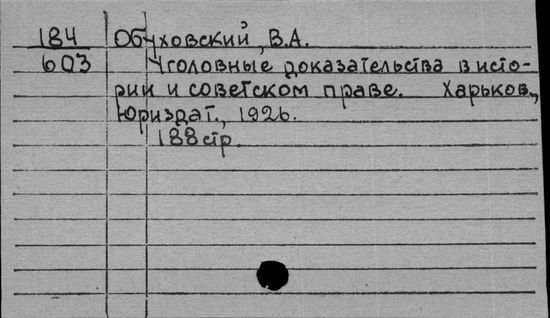 184 Обуховский, В.А.
603 Уголовные доказательства в исто-
рии и советском праве. Харьков,
Юриздат., 1926.
188 стр.